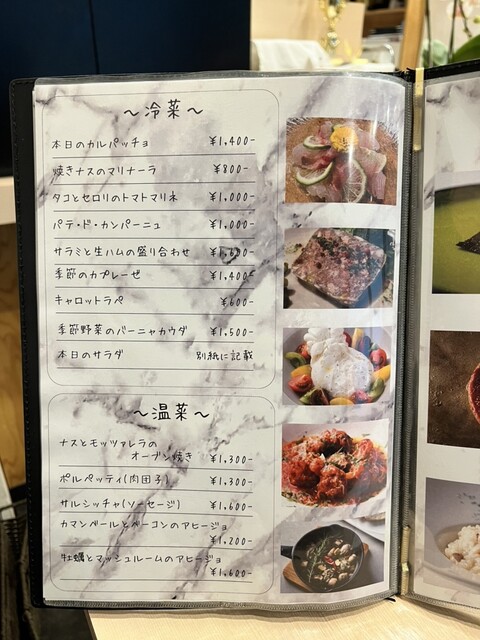 ～冷菜～
本日のカルパッチョ ¥1,400-
焼きナスのマリナーラ ¥800-
タコとセロリのトマトマリネ ¥1,000-
パテ・ド・カンパーニュ ¥1,000-
サラミと生ハムの盛り合わせ
季節のカプレーゼ ¥1,400-
キャロットラペ ¥600-
季節野菜のバーニャカウダ ¥1,500-
本日のサラダ 別紙に記載
～温菜～
ナスとモッツァレラの
オーブン焼き ¥1,300-
ポルペッティ(肉団子) ¥1,300-
サルシッチャ(ソーセージ) ¥1,600-
カマンベールとベーコンのアヒージョ
¥1,200-
牡蠣とマッシュルームのアヒージョ
¥1,600-